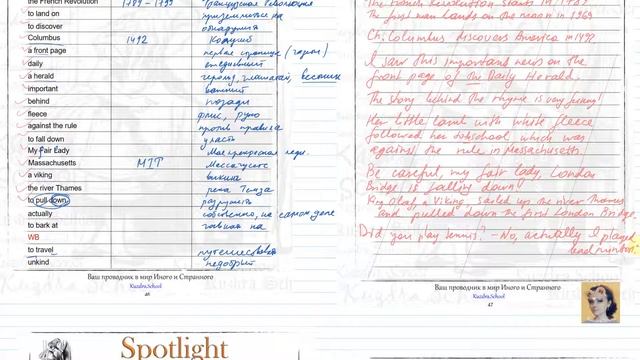 the French Revolution 1789 - 1799 Французская революция
to land on приземлиться на
to discover обнаружить
Columbus 1492 Колумб
a front page первая страница (газеты)
daily ежедневный
a herald герольд, глашатай, вестник
important важный
behind позади
fleece флис, руно
against the rule против правила
to fall down упасть
My Fair Lady Моя прекрасная леди
Massachusetts MIT Массачусетс
a viking викинг
the river Thames река Темза
to pull down разрушить
actually собственно, на самом деле
to bark at гавкать на
WB
to travel путешествовать
unkind недобрый
Ваш проводник в мир Иного и Странного
Kuzdra.School
46
The French Revolution starts in 1789
The first man lands on the moon in 1969
Ch. Columbus discovers America in 1492
I saw this important news on the
front page of The Daily Herald.
The story behind the rhyme is very funny!
Her little lamb with white fleece
followed her to school which was
against the rule in Massachusetts.
Be careful, my fair lady, London
Bridge is falling down
King Olaf, a Viking, sailed up the river Thames
and pulled down the first London Bridge.
Did you play tennis? - No, actually I played
badminton.
Ваш проводник в мир Иного и Странного
Kuzdra.School
47
Spotlight